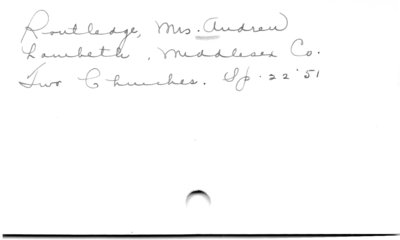 Routledge, Mrs. Andrew
Lambeth, Middlesex Co.
Two Churches. Sp. 22 '51